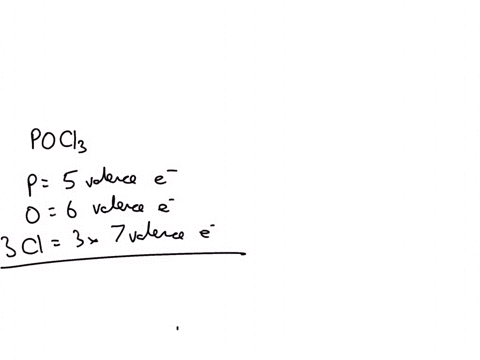 POCl₃
P = 5 valence e⁻
O = 6 valence e⁻
3 Cl = 3 × 7 valence e⁻